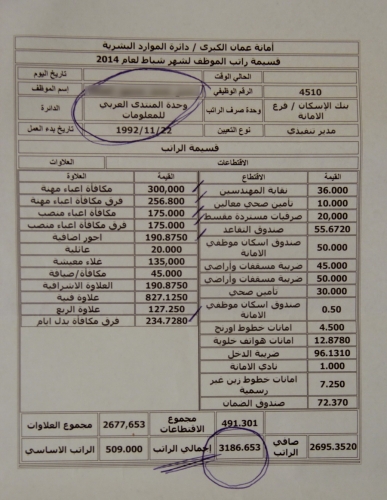 أمانة عمان الكبرى / دائرة الموارد البشرية
قسيمة راتب الموظف لشهر شباط لعام 2014
تاريخ اليوم الحالي الوقت
اسم الموظف الرقم الوظيفي 4510
الدائرة وحدة المنتدى العربي للمعلومات وحدة صرف الراتب بنك الاسكان / فرع الامانة
تاريخ بدء العمل 1992/11/22 نوع التعيين مدير تنفيذي
قسيمة الراتب
العلاوات الاقتطاعات
العلاوة القيمة الاقتطاع القيمة
مكافأة اعباء مهنة 300,000 نقابة المهندسين 36.000
فرق مكافأة اعباء مهنة 256.800 تأمين صحي معالين 10.000
مكافأة اعباء منصب 175.000 صرفيات مستردة مقسط 20,000
فرق مكافأة اعباء منصب 175.000 صندوق التقاعد 55.6720
اجور اضافية 190.8750 صندوق اسكان موظفي الامانة 50.000
عائلية 20.000
علاء معيشة 135,000 ضريبة مسقفات وأراضي 45.000
مكافأة/ضيافة 45.000 ضريبة مسقفات وأراضي 50.000
العلاوة الاشرافية 190.8750 تأمين صحي 30.000
علاوة فنية 827.1250 صندوق اسكان موظفي الامانة 0.50
علاوة الريع 127.250
فرق مكافأة بدل ايام 234.7280 امانات خطوط اورنج 4.500
امانات هواتف خلوية 12.8780
ضريبة الدخل 96.1310
نادي الامانة 1.000
امانات خطوط زين غير رسمية 7.250
صندوق الضمان 72.370
مجموع العلاوات 2677,653 مجموع الاقتطاعات 491.301
الراتب الاساسي 509.000 إجمالي الراتب 3186.653 صافي الراتب 2695.3520